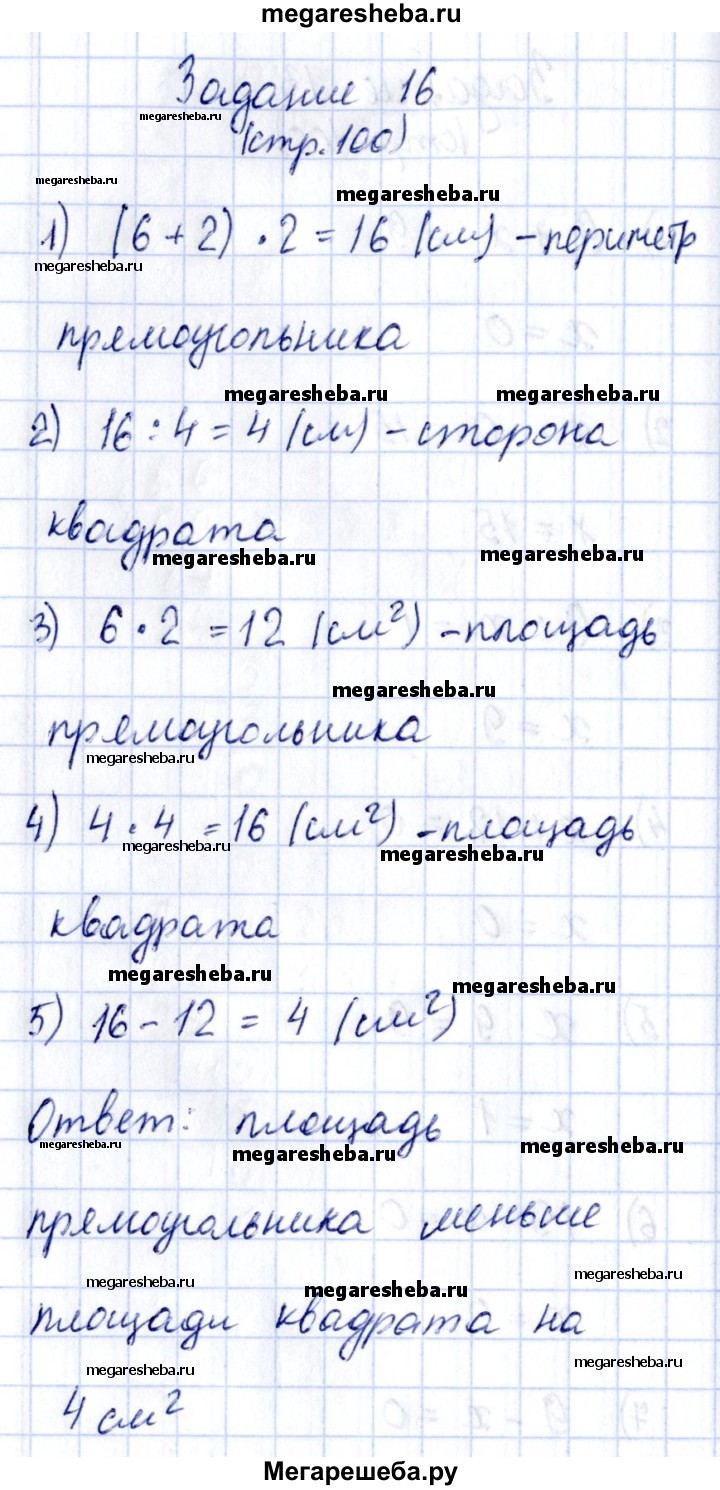 megaresheba.ru
Задание 16
megaresheba.ru
(стр.100)
megaresheba.ru
megaresheba.ru
1) (6 + 2) · 2 = 16 (см) - периметр
megaresheba.ru
прямоугольника
megaresheba.ru megaresheba.ru
2) 16 : 4 = 4 (см) - сторона
квадрата
megaresheba.ru megaresheba.ru
3) 6 · 2 = 12 (см²) - площадь
megaresheba.ru
прямоугольника
megaresheba.ru
4) 4 · 4 = 16 (см²) - площадь
megaresheba.ru megaresheba.ru
квадрата
megaresheba.ru megaresheba.ru
5) 16 - 12 = 4 (см²)
Ответ: площадь
megaresheba.ru megaresheba.ru megaresheba.ru
прямоугольника меньше
megaresheba.ru megaresheba.ru megaresheba.ru
площади квадрата на
megaresheba.ru megaresheba.ru
4 см²
Мегарешеба.ру